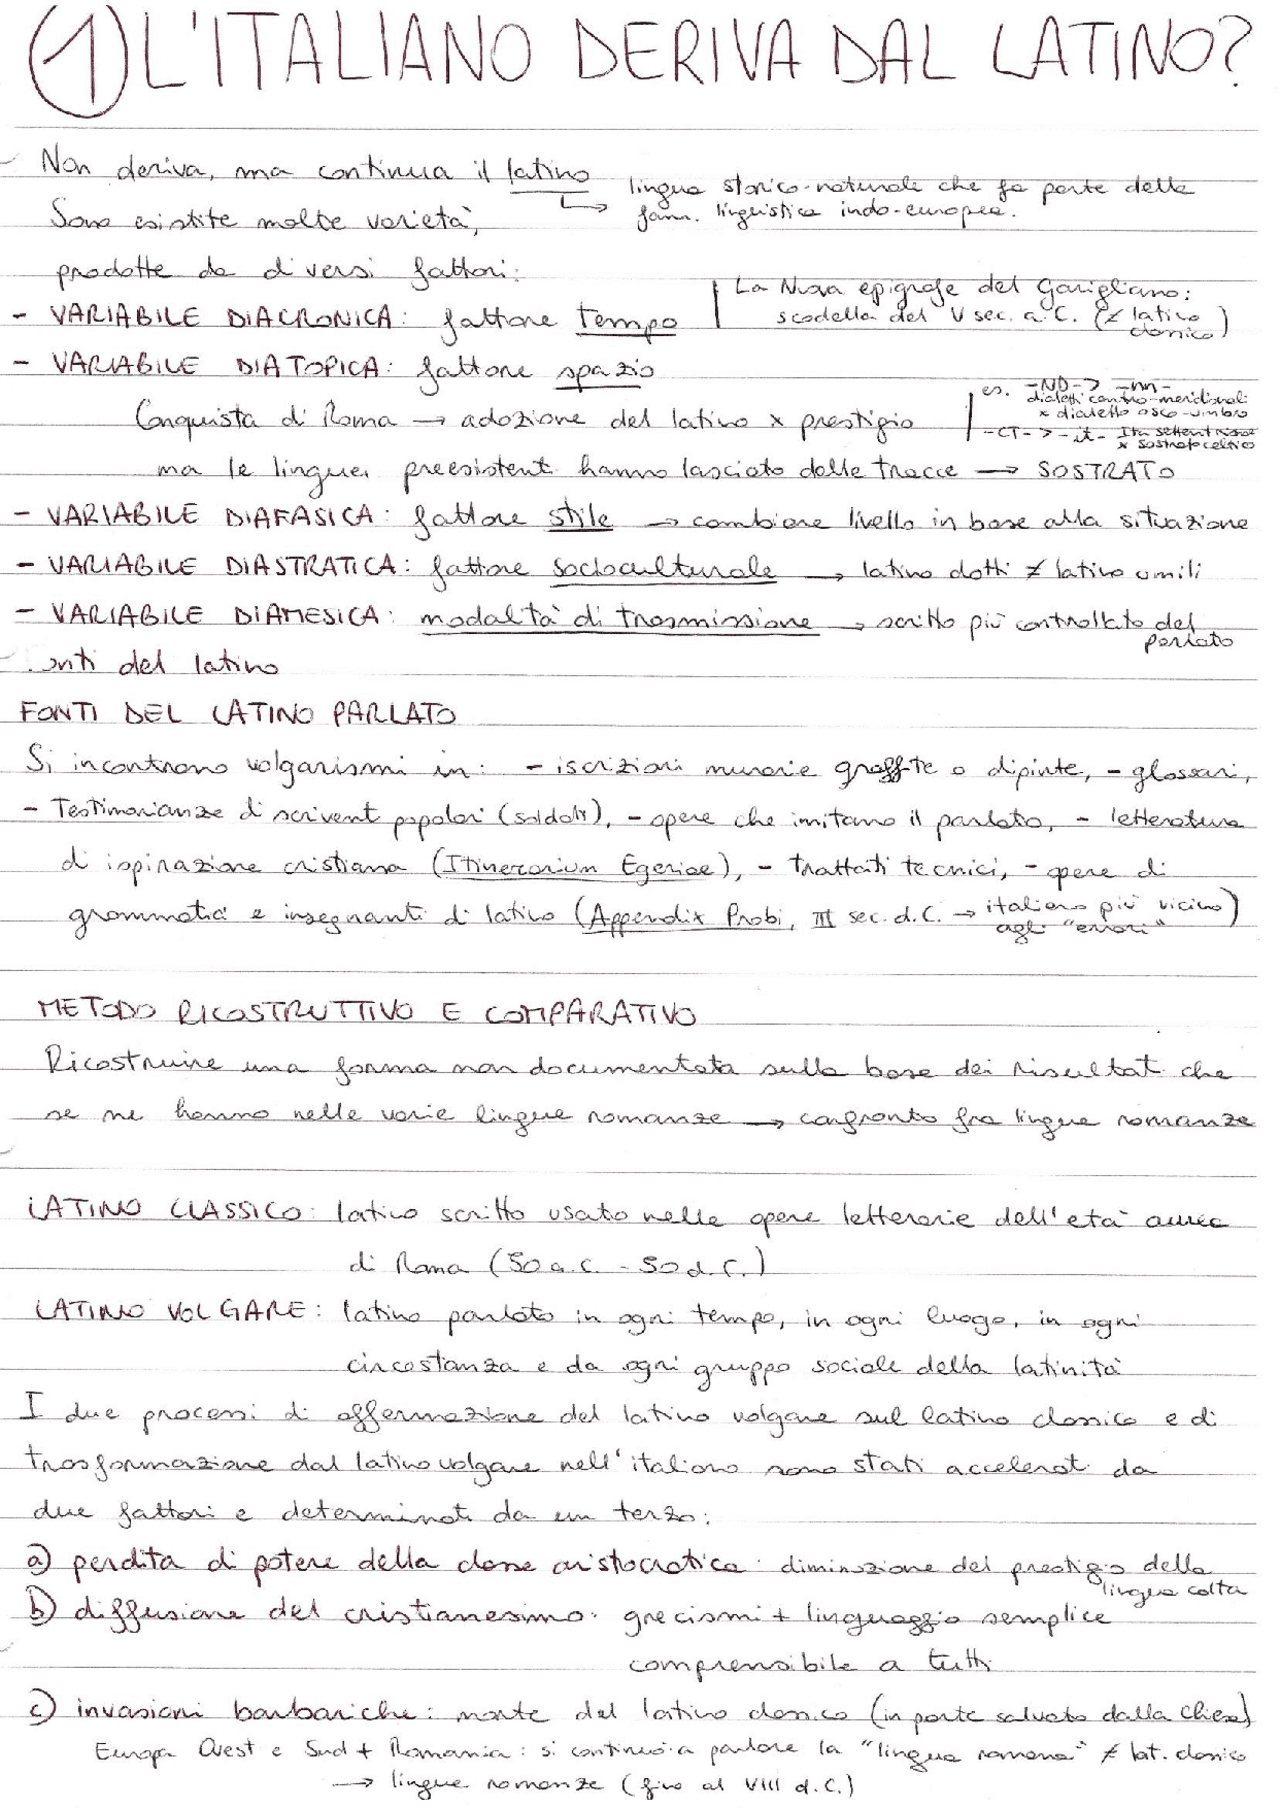 ① L'ITALIANO DERIVA DAL LATINO?
Non deriva, ma continua il latino
↳ lingua storico-naturale che fa parte della
fam. linguistica indo-europea.
Sono esistite molte varietà,
prodotte da diversi fattori:
- VARIABILE DIACRONICA: fattore tempo
La Nuova epigrafe del Garigliano:
scodella del V sec. a.C. (≠ latino
classico)
- VARIABILE DIATOPICA: fattore spazio
Conquista di Roma → adozione del latino x prestigio
es. -ND- > -nn-
dialetti centro-meridionali
x dialetto osco-umbro
-CT- > -it- Ita settentrionale
x sostrato celtico
ma le lingue preesistenti hanno lasciato delle tracce → SOSTRATO
- VARIABILE DIAFASICA: fattore stile → cambiare livello in base alla situazione
- VARIABILE DIASTRATICA: fattore socioculturale → latino dotti ≠ latino umili
- VARIABILE DIAMESICA: modalità di trasmissione → scritto più controllato del
parlato
onti del latino
FONTI DEL LATINO PARLATO
Si incontrano volgarismi in: - iscrizioni murarie graffite o dipinte, - glossari,
- Testimonianze di scriventi popolari (soldati), - opere che imitano il parlato, - letteratura
di ispirazione cristiana (Itinerarium Egeriae), - trattati tecnici, - opere di
grammatici e insegnanti di latino (Appendix Probi, III sec. d.C. → italiano più vicino
agli "errori")
METODO RICOSTRUTTIVO E COMPARATIVO
Ricostruire una forma non documentata sulla base dei risultati che
se ne hanno nelle varie lingue romanze → confronto fra lingue romanze
LATINO CLASSICO: latino scritto usato nelle opere letterarie dell'età aurea
di Roma (50 a.C. - 50 d.C.)
LATINO VOLGARE: latino parlato in ogni tempo, in ogni luogo, in ogni
circostanza e da ogni gruppo sociale della latinità
I due processi di affermazione del latino volgare sul latino classico e di
trasformazione dal latino volgare nell'italiano sono stati accelerati da
due fattori e determinati da un terzo:
a) perdita di potere della classe aristocratica: diminuzione del prestigio della
lingua colta
b) diffusione del cristianesimo: grecismi + linguaggio semplice
comprensibile a tutti
c) invasioni barbariche: morte del latino classico (in parte salvato dalla Chiesa)
Europa Ovest e Sud + Romania: si continua a parlare la "lingua romana" ≠ lat. classico
→ lingue romanze (fino al VIII d.C.)